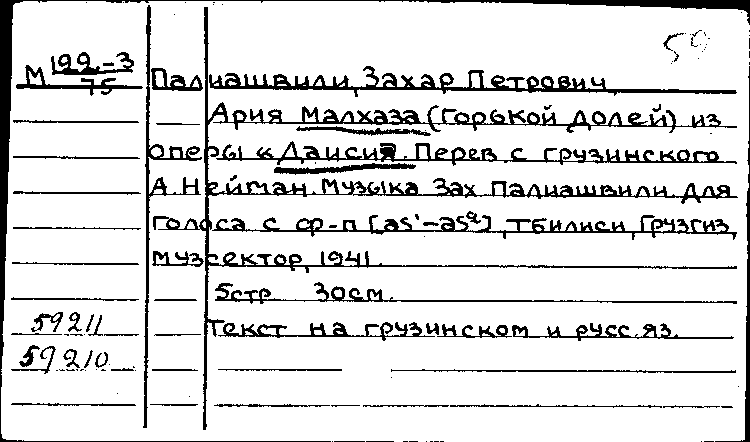 59
М 199-3/75 Палиашвили, Захар Петрович
Ария Малхаза (Горькой долей) из
оперы «Даиси». Перев. с грузинского
А. Нейман. Музыка Зах Палиашвили. Для
голоса с ф-п [as¹-as²], Тбилиси, Грузгиз,
музсектор, 1941.
5стр 30см.
59211 Текст на грузинском и русс. яз.
59210